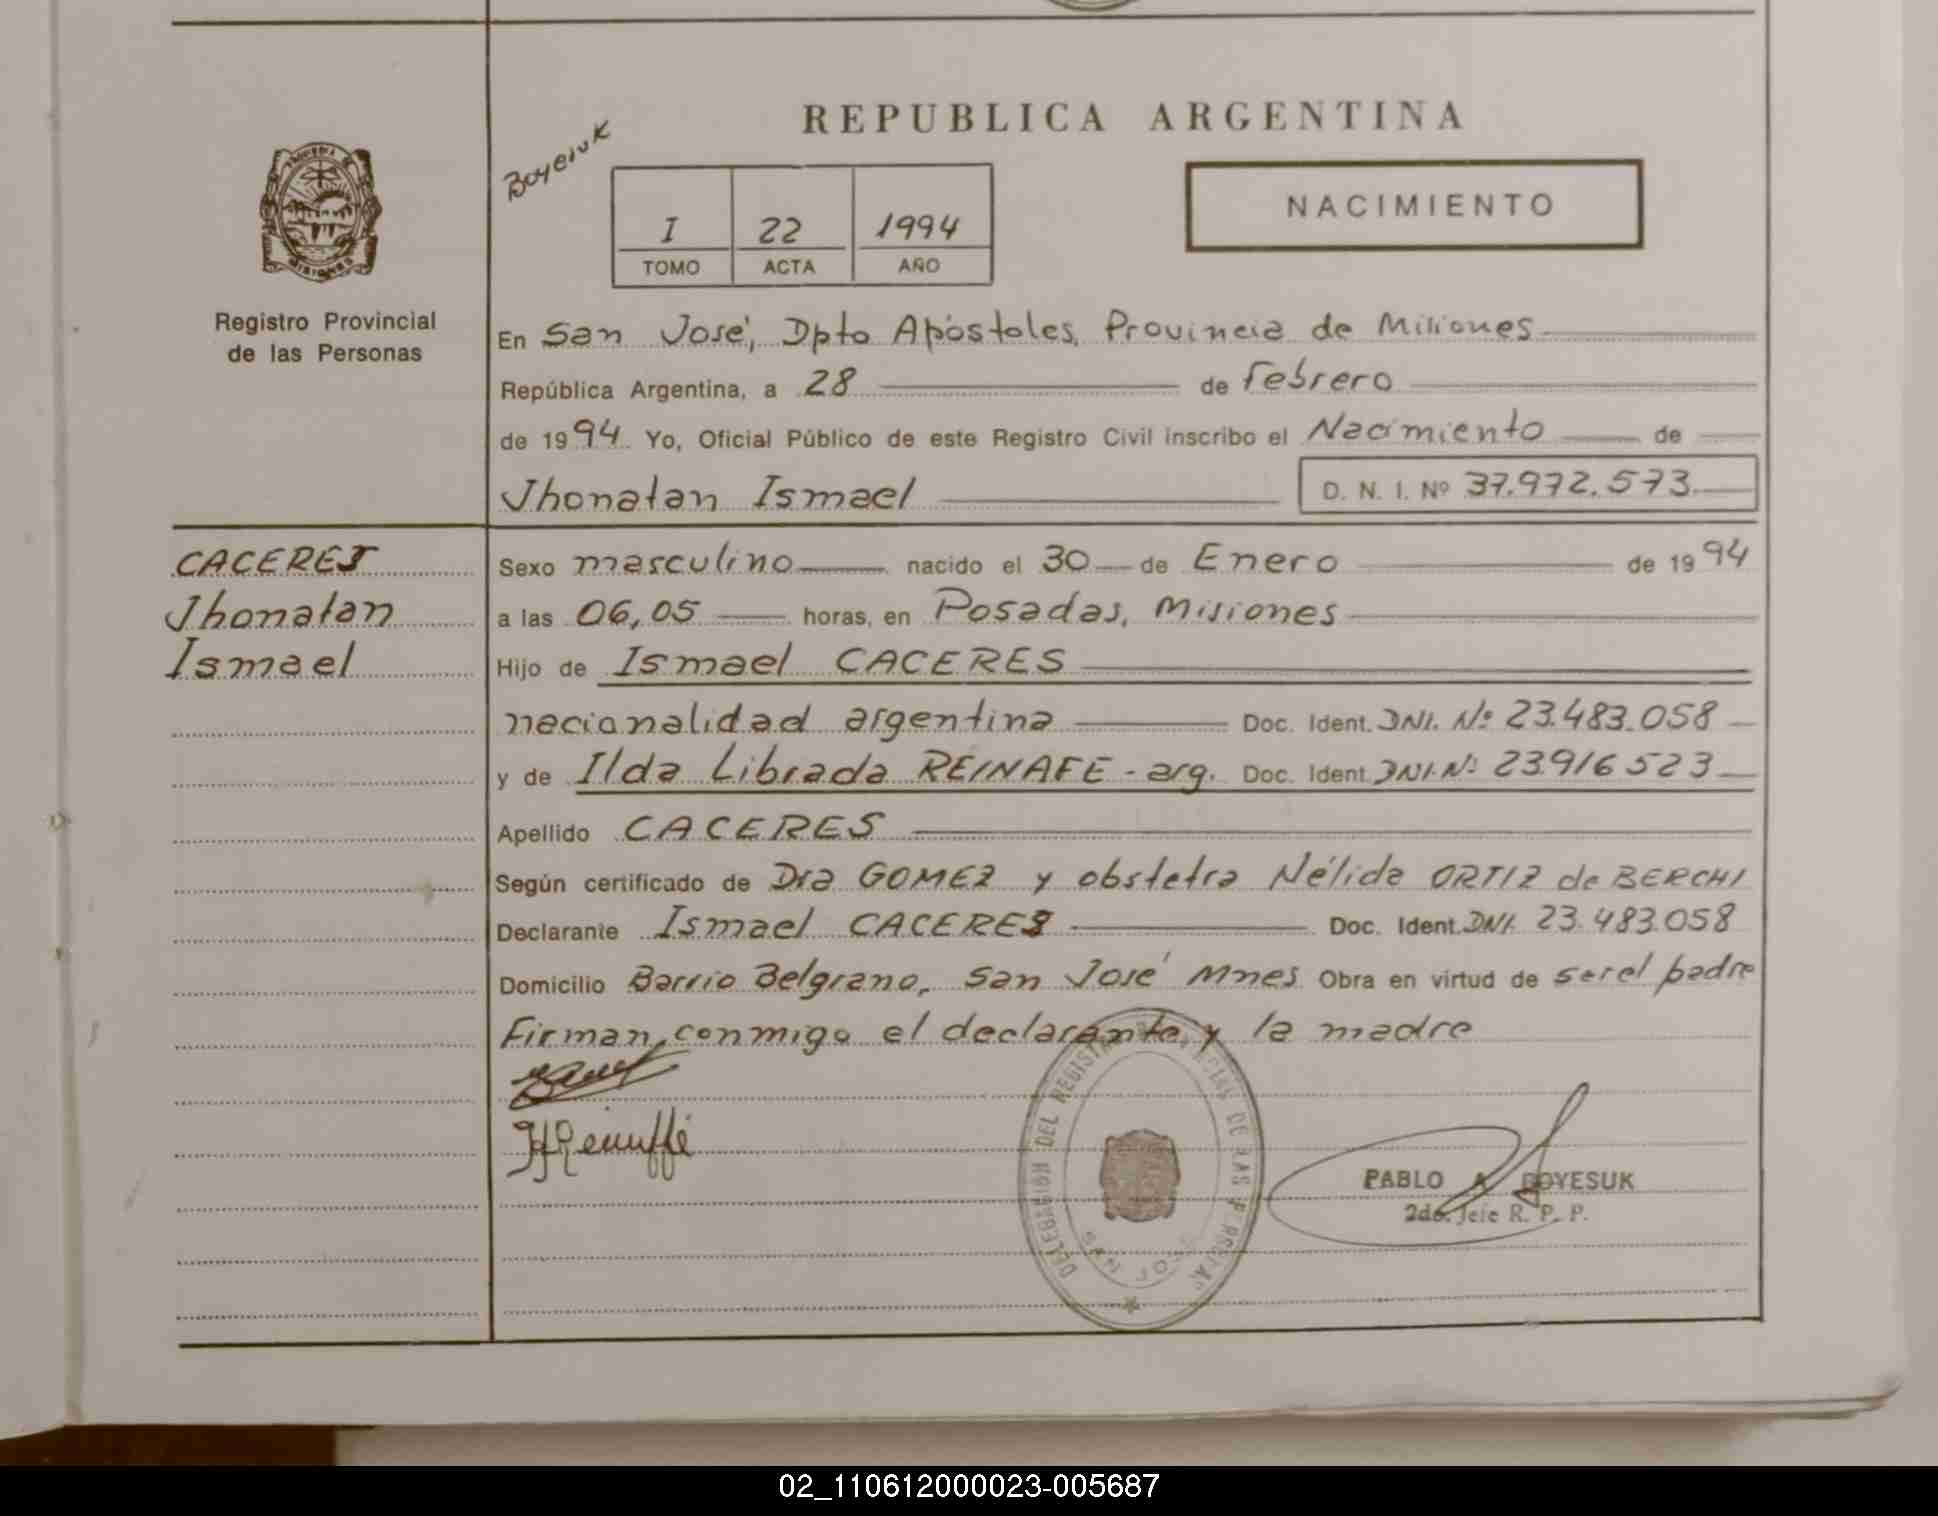 REPUBLICA ARGENTINA
Boyesuk
I 22 1994
TOMO ACTA AÑO
NACIMIENTO
MISIONES
Registro Provincial
de las Personas
En San José, Dpto Apóstoles, Provincia de Misiones
República Argentina, a 28 de Febrero
de 1994 Yo, Oficial Público de este Registro Civil inscribo el Nacimiento de
Jhonatan Ismael D. N. I. Nº 37.972.573
CACERES
Jhonatan
Ismael
Sexo masculino nacido el 30 de Enero de 1994
a las 06,05 horas, en Posadas, Misiones
Hijo de Ismael CACERES
nacionalidad argentina Doc. Ident. DNI. Nº 23.483.058
y de Ilda Librada REINAFE - arg. Doc. Ident. DNI. Nº 23.916 523
Apellido CACERES
Según certificado de Dra GOMEZ y obstetra Nélida ORTIZ de BERCHI
Declarante Ismael CACERES Doc. Ident. DNI. 23.483.058
Domicilio Barrio Belgrano, San José Mnes Obra en virtud de ser el padre
Firman conmigo el declarante y la madre
DELEGACION DEL REGISTRO PROVINCIAL DE LAS PERSONAS
SAN JOSE
PABLO A. BOYESUK
2do. Jefe R. P. P.
02_110612000023-005687